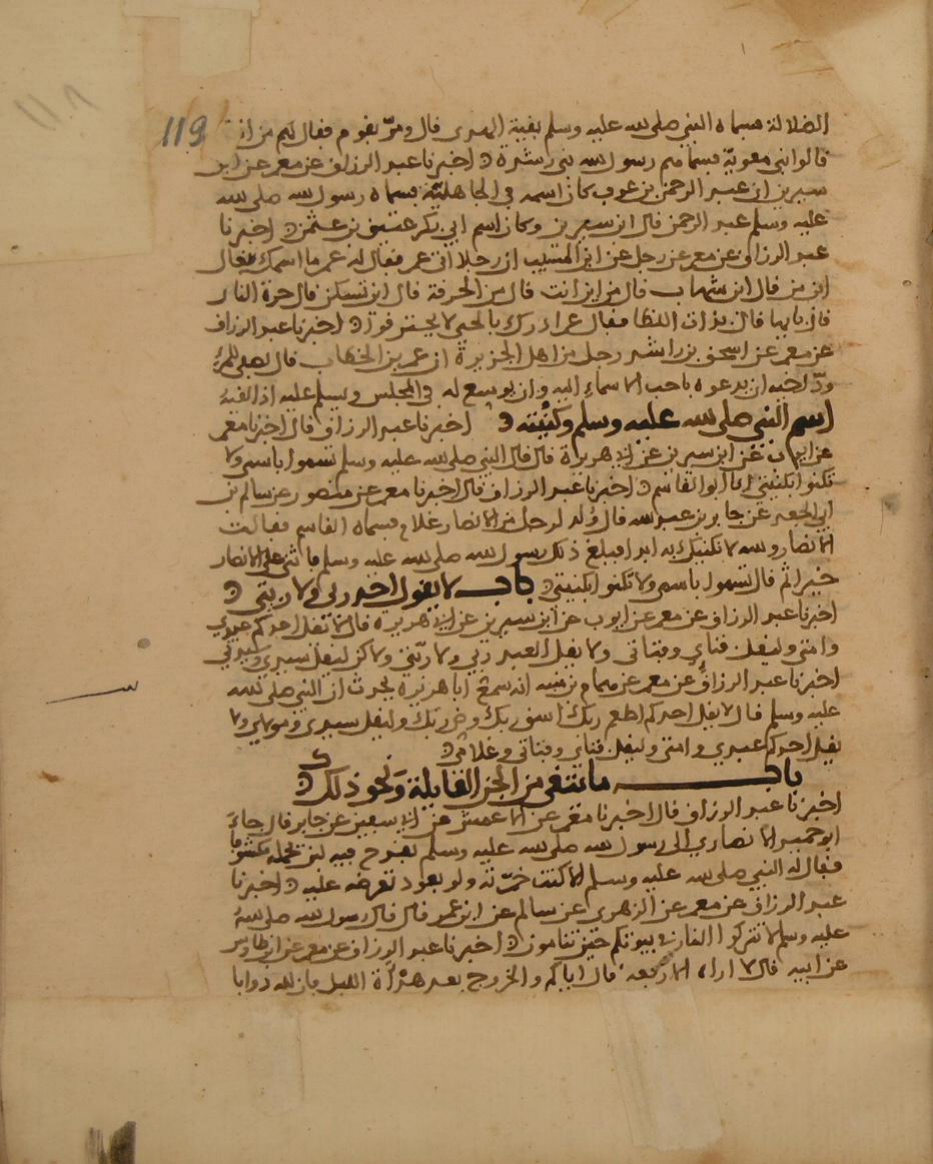 119
الضلالة فسماه النبي صلى الله عليه وسلم بقية الهدى قال ومر بقوم فقال لهم من انتم
قالوا بني معوية فسماهم رسول الله بني رشدة اخبرنا عبد الرزاق عن معمر عن ابن
سيرين ان عبد الرحمن بن عوف كان اسمه في الجاهلية فسماه رسول الله صلى الله
عليه وسلم عبد الرحمن قال ابن سيرين وكان اسم ابي بكر عتيق بن عثمن اخبرنا
عبد الرزاق عن معمر عن رجل عن ابن المسيب ان رجلا اتى عمر فقال له عمر ما اسمك فقال
ابن من قال ابن شهاب قال من اين انت قال من الحرقة قال اين تسكن قال حرة النار
قال بايها قال بذات اللظا فقال عمر ادرك بالحي لا يحترقوا اخبرنا عبد الرزاق
عن معمر عن اسحق بن راشد رجل من اهل الجزيرة ان عمر بن الخطاب قال
ود اخيه ان يدعوه باحب الاسماء اليه وان يوسع له في المجلس ويسلم عليه اذا لقيه
اسم النبي صلى الله عليه وسلم وكنيته اخبرنا عبد الرزاق قال اخبرنا معمر
عن ايوب عن ابن سيرين عن ابي هريرة قال قال النبي صلى الله عليه وسلم تسموا باسمي ولا
تكنوا بكنيتي انا ابو القاسم اخبرنا عبد الرزاق قال اخبرنا معمر عن منصور عن سالم بن
ابي الجعد عن جابر بن عبد الله قال ولد لرجل من الانصار غلام فسماه القاسم فقالت
الانصار والله لا نكنيك به ابدا فبلغ ذلك رسول الله صلى الله عليه وسلم فاثنى على الانصار
خيرا ثم قال تسموا باسمي ولا تكنوا بكنيتي باب لا يقول احد ربي ولا ربتي
اخبرنا عبد الرزاق عن معمر عن ايوب عن ابن سيرين عن ابي هريرة قال لا يقل احدكم عبدي
وامتي وليقل فتاي وفتاتي ولا يقل العبد ربي ولا ربتي ولاكن ليقل سيدي وسيدتي
اخبرنا عبد الرزاق عن معمر عن همام بن منبه انه سمع ابا هريرة يحدث ان النبي صلى الله
عليه وسلم قال لا يقل احدكم اطعم ربك اسق ربك وض ربك وليقل سيدي ومولاي ولا
يقل احدكم عبدي وامتي وليقل فتاي وفتاتي وغلامي
باب ما يتقى من الجن القايلة ونحو ذلك
اخبرنا عبد الرزاق قال اخبرنا معمر عن الاعمش عن ابي سفين عن جابر قال جاء
ابو حميد الانصاري الى رسول الله صلى الله عليه وسلم بقدح فيه لبن يحمله مكشوفا
فقال له النبي صلى الله عليه وسلم الا كنت خمرته ولو بعود تعرضه عليه اخبرنا
عبد الرزاق عن معمر عن الزهري عن سالم عن ابن عمر قال قال رسول الله صلى الله
عليه وسلم لا تتركوا النار في بيوتكم حين تنامون اخبرنا عبد الرزاق عن معمر عن ابن طاوس
عن ابيه قال لا اراه الا رفعه قال اياكم والخروج بعد هدأة الليل فان لله دوابا